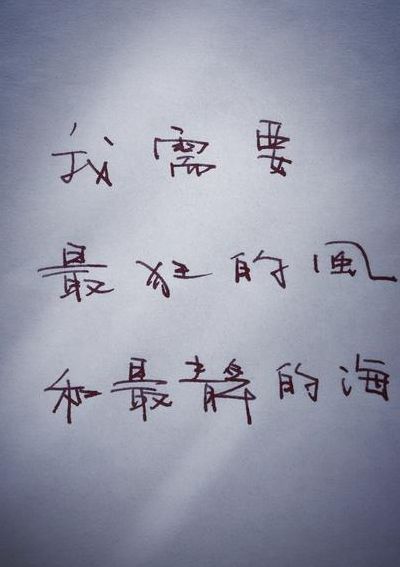 我需要
最狂的風
和最靜的海